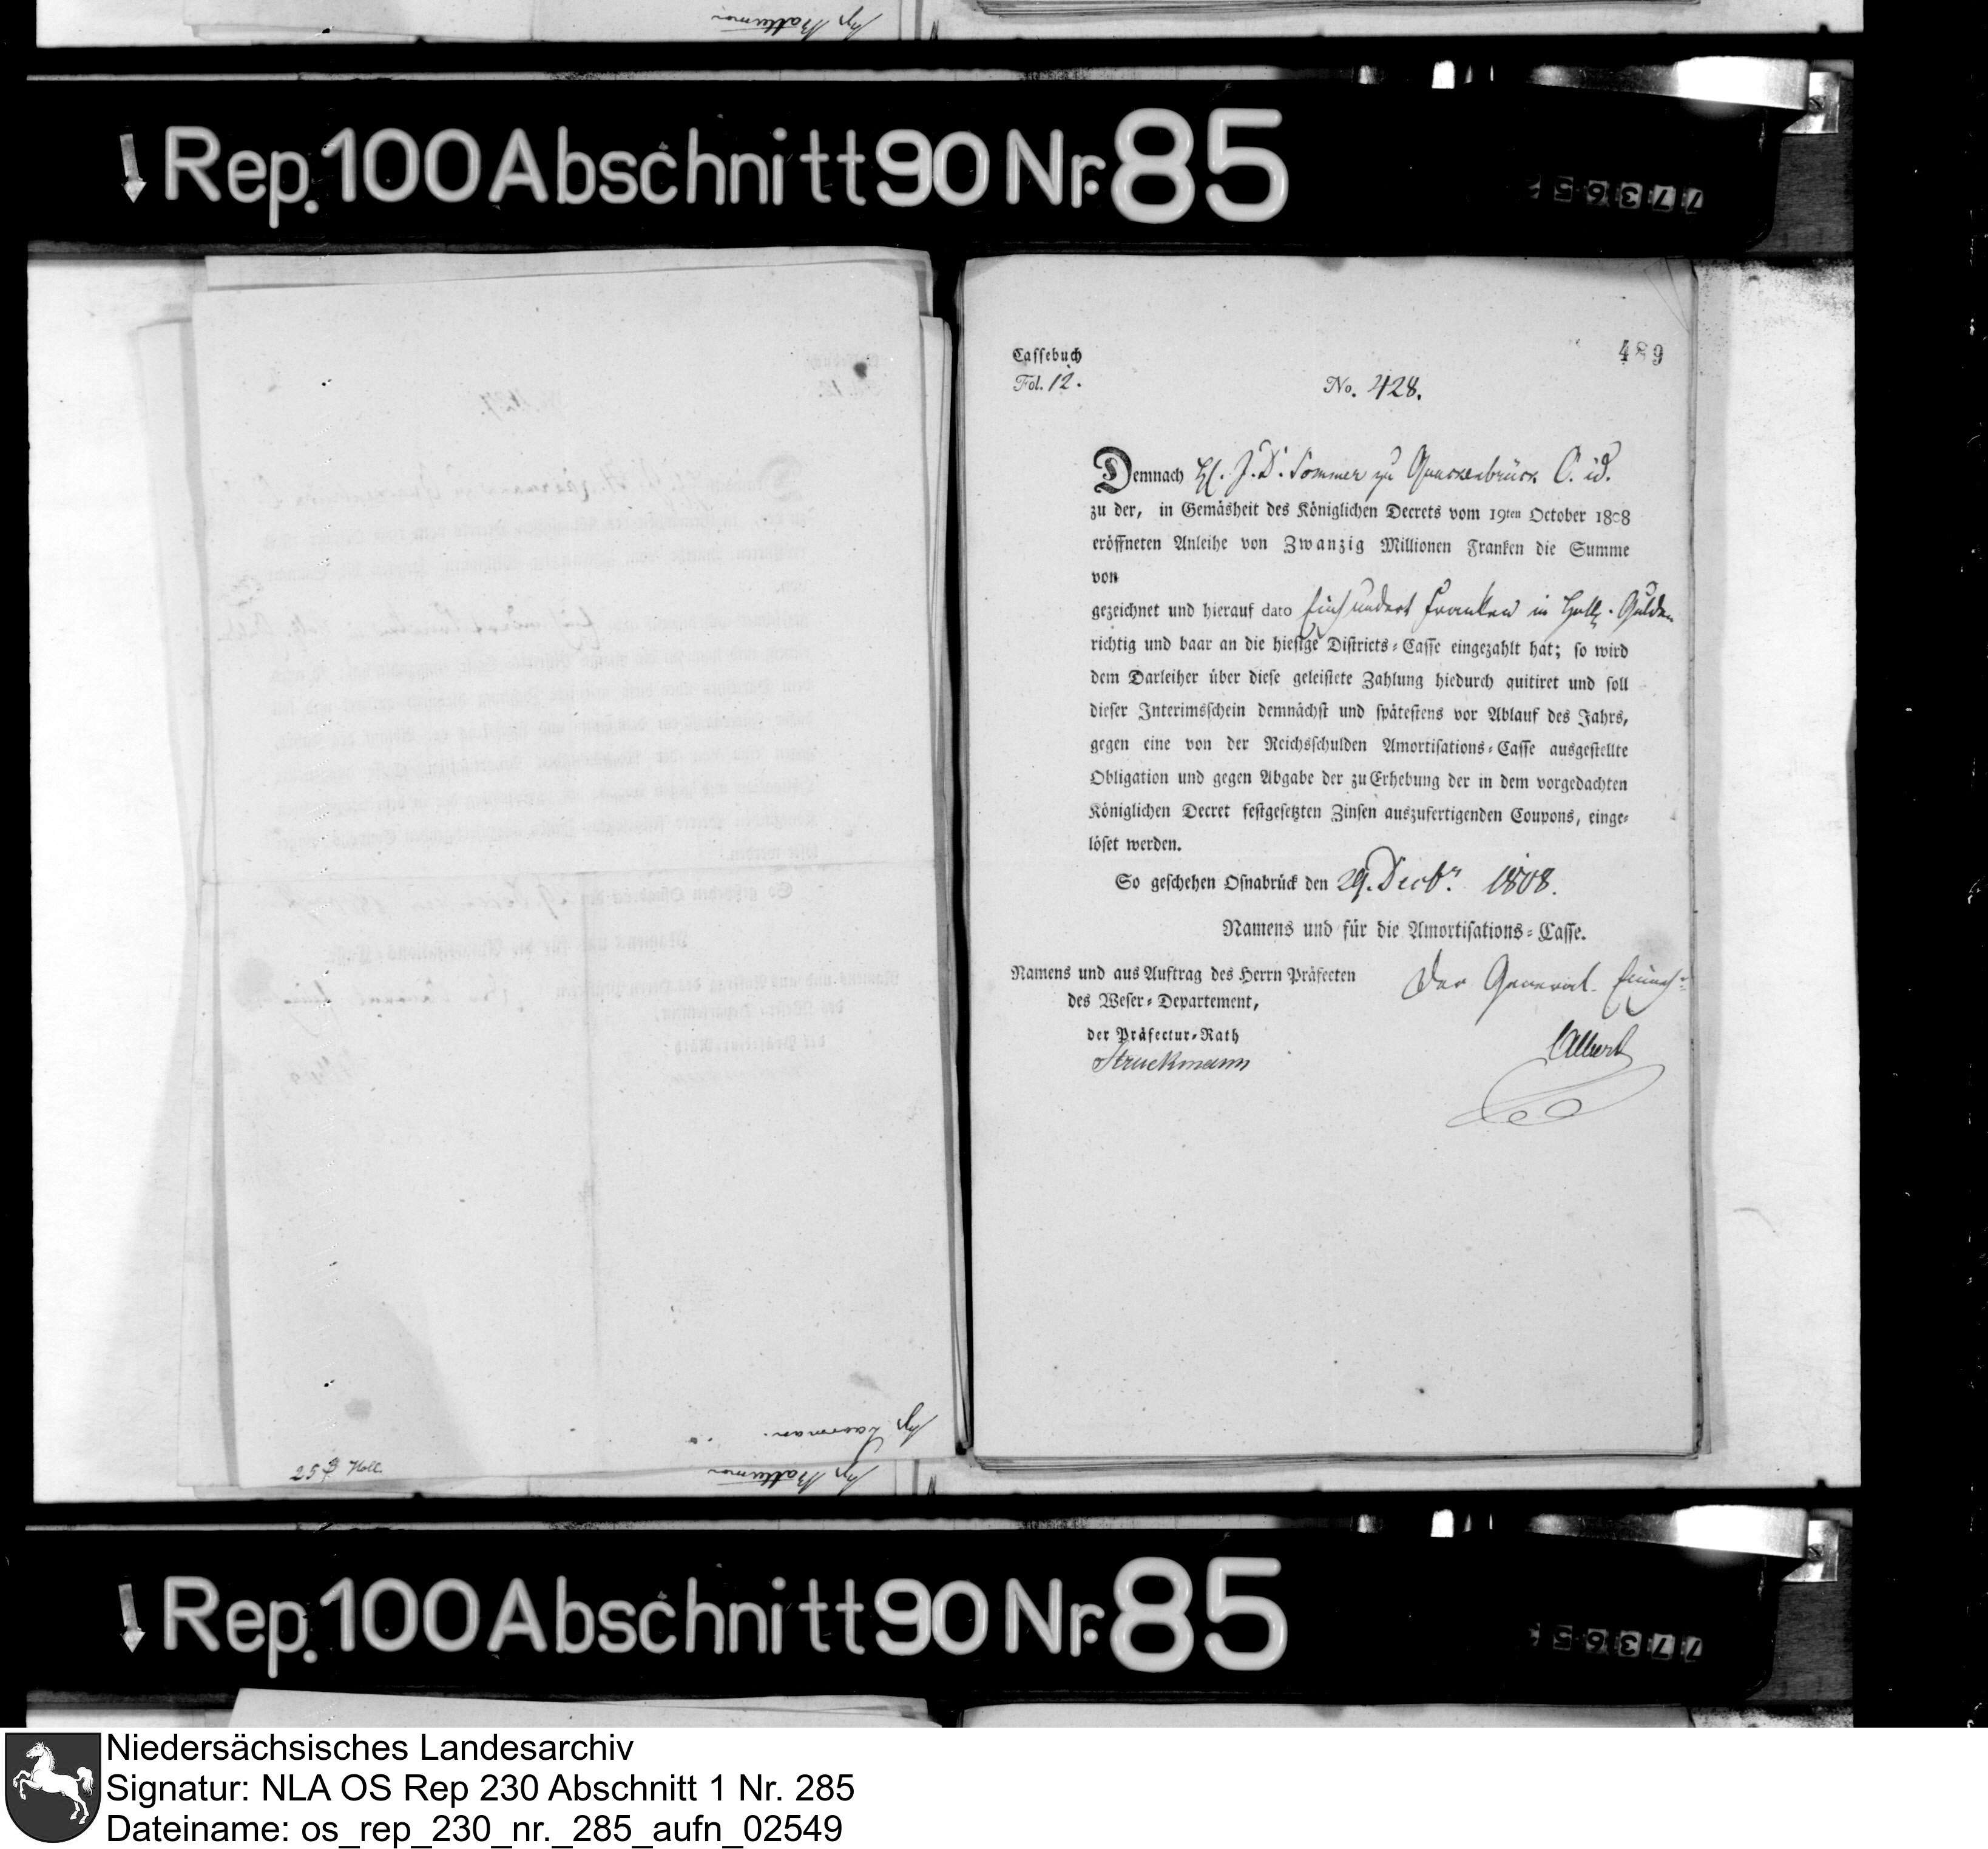 Rep. 100 Abschnitt 90 Nr. 85
Cassebuch
489
Fol. 12.
No. 428.
Demnach H. J. D. Sommer zu Quackenbrück C. id.
zu der, in Gemäsheit des Königlichen Decrets vom 19ten October 1808
eröffneten Anleihe von Zwanzig Millionen Franken die Summe
von
gezeichnet und hierauf dato Einhundert Franken in Holl. Gulden
richtig und baar an die hiesige Districts-Casse eingezahlt hat; so wird
dem Darleiher über diese geleistete Zahlung hiedurch quitiret und soll
dieser Interimsschein demnächst und spätestens vor Ablauf des Jahrs,
gegen eine von der Reichsschulden Amortisations-Casse ausgestellte
Obligation und gegen Abgabe der zu Erhebung der in dem vorgedachten
Königlichen Decret festgesetzten Zinsen auszufertigenden Coupons, einge-
löset werden.
So geschehen Osnabrück den 29. Decbr. 1808.
Namens und für die Amortisations-Casse.
Namens und aus Auftrag des Herrn Präfecten
des Weser-Departement,
der Präfectur-Rath
Struckmann
Der General-Einneh-
Albert
25 Holl.
Rep. 100 Abschnitt 90 Nr. 85
Niedersächsisches Landesarchiv
Signatur: NLA OS Rep 230 Abschnitt 1 Nr. 285
Dateiname: os_rep_230_nr._285_aufn_02549